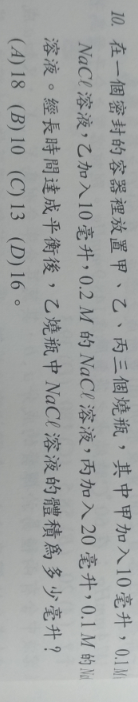 10. 在一個密封的容器裡放置甲、乙、丙三個燒瓶,其中甲加入10毫升,0.1M
NaCℓ溶液,乙加入10毫升,0.2 M 的 NaCℓ溶液,丙加入 20 毫升,0.1 M 的 Na
溶液。經長時間達成平衡後,乙燒瓶中 NaCℓ溶液的體積為多少毫升?
(A)18 (B)10 (C)13 (D)16。